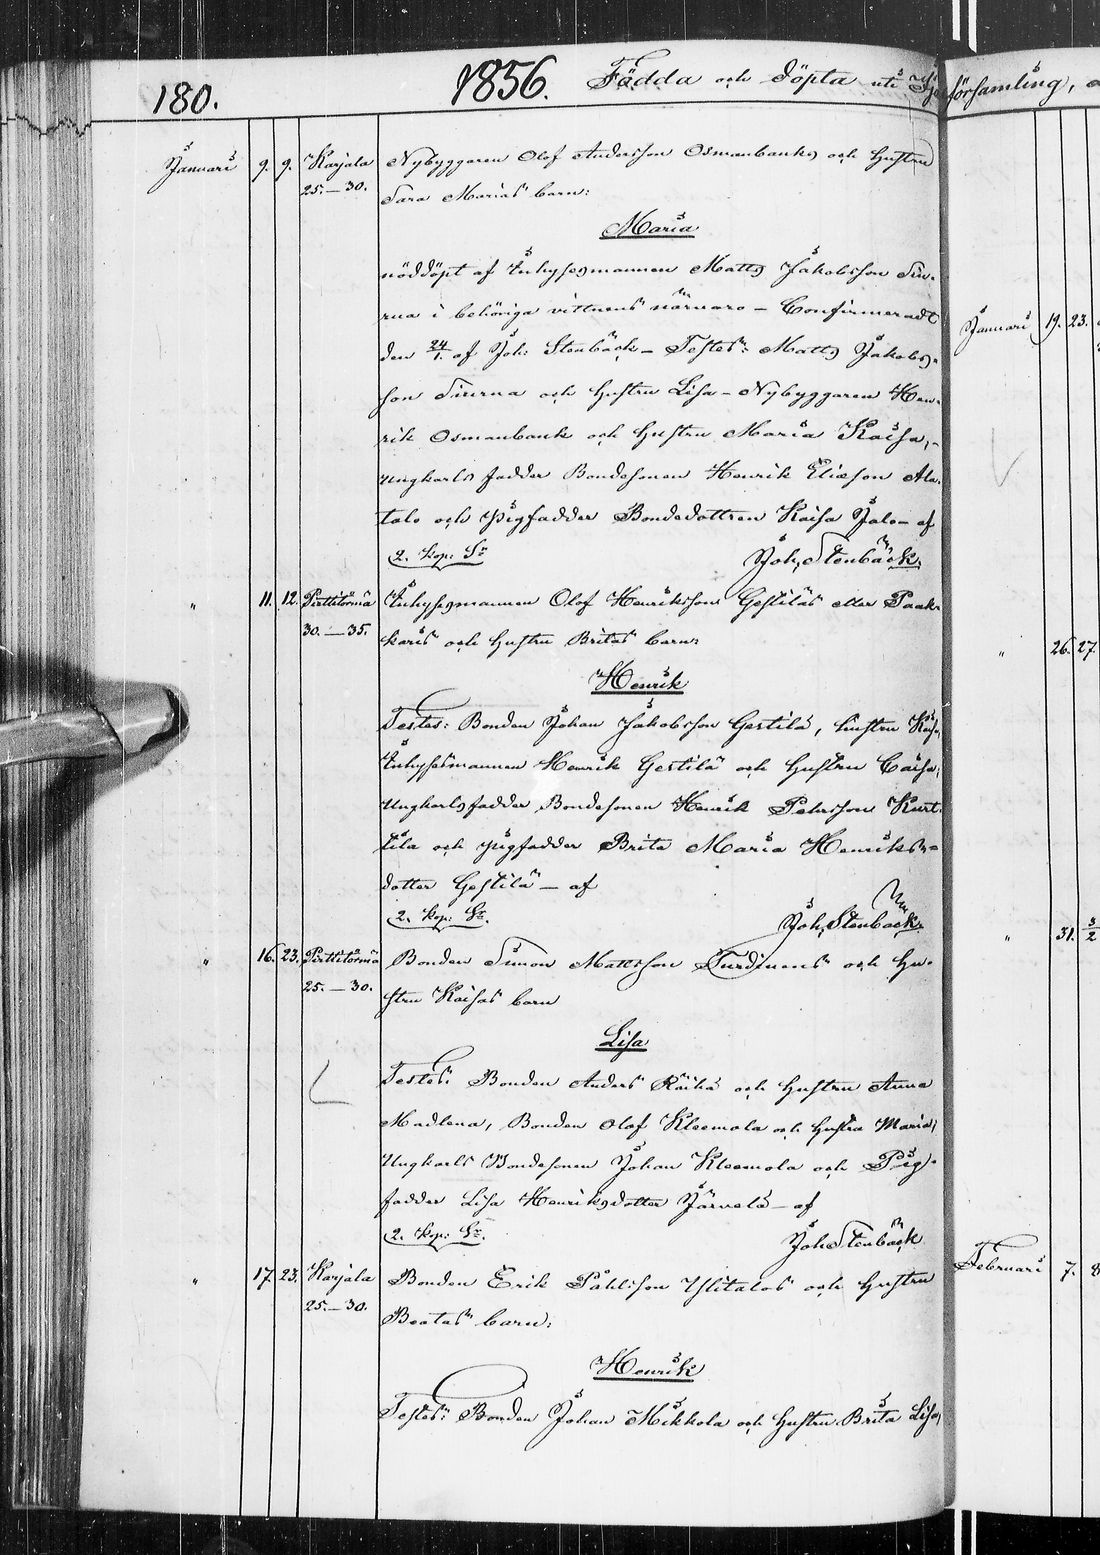 180. 1856. Födda och döpta uti
församling,
Januari 9. 9. Karjala Nybyggaren Olof Andersson Osmanbanks och hustru
25.–30. Sara Marias barn:
Maria
nöddöpt af Inhysesmannen Matts Jakobsson
i behöriga vittnens närvaro – Confirmeradt
den 24/1. af Joh: Stenbäck – Testes: Matts Jakobs-
son och hustru Lisa – Nybyggaren Hen-
rik Osmanbank och hustru Maria Kaisa,
ungkarls fadder Bondesonen Henrik Eliæson Ala-
talo och pigfadder Bondedottren Kaisa Jalo – af
2. kop: Sr Joh, Stenbäck.
" 11. 12. Pirttitörmä Inhysesmannen Olof Henriksson Gestiläs eller Paak-
30.–35. karis och hustru Britas barn:
Henrik
Testes: Bonden Johan Jakobsson Gestilä, hustru Kaisa,
Inhysesmannen Henrik Gestilä och hustru Caisa,
Ungkarlsfadder Bondesonen Henrik Pehrsson Kurt-
tila och pigfadder Brita Maria Henriks-
dotter Gestilä – af
2. kop: Sr. Joh, Stenbäck.
" 16. 23. Pirttitörmä Bonden Simon Mattsson och hu-
25.–30. stru Kaisas barn
Lisa
Testes: Bonden Anders Räihä och hustru Anna
Madlena, Bonden Olof Kleemola och hustru Maria,
Ungkarls Bondesonen Johan Kleemola och Pig-
fadder Lisa Henriksdotter Järvelä – af
2. kop: Sr. Joh Stenbäck
" 17. 23. Karjala Bonden Erik Påhlsson Ylitalos och hustru
25.–30. Beatas barn:
Henrik
Testes: Bonden Johan Mikkola och hustru Brita Lisa,
Januari 19. 23.
" 26. 27.
" 31. 3/2
Februari 7. 8